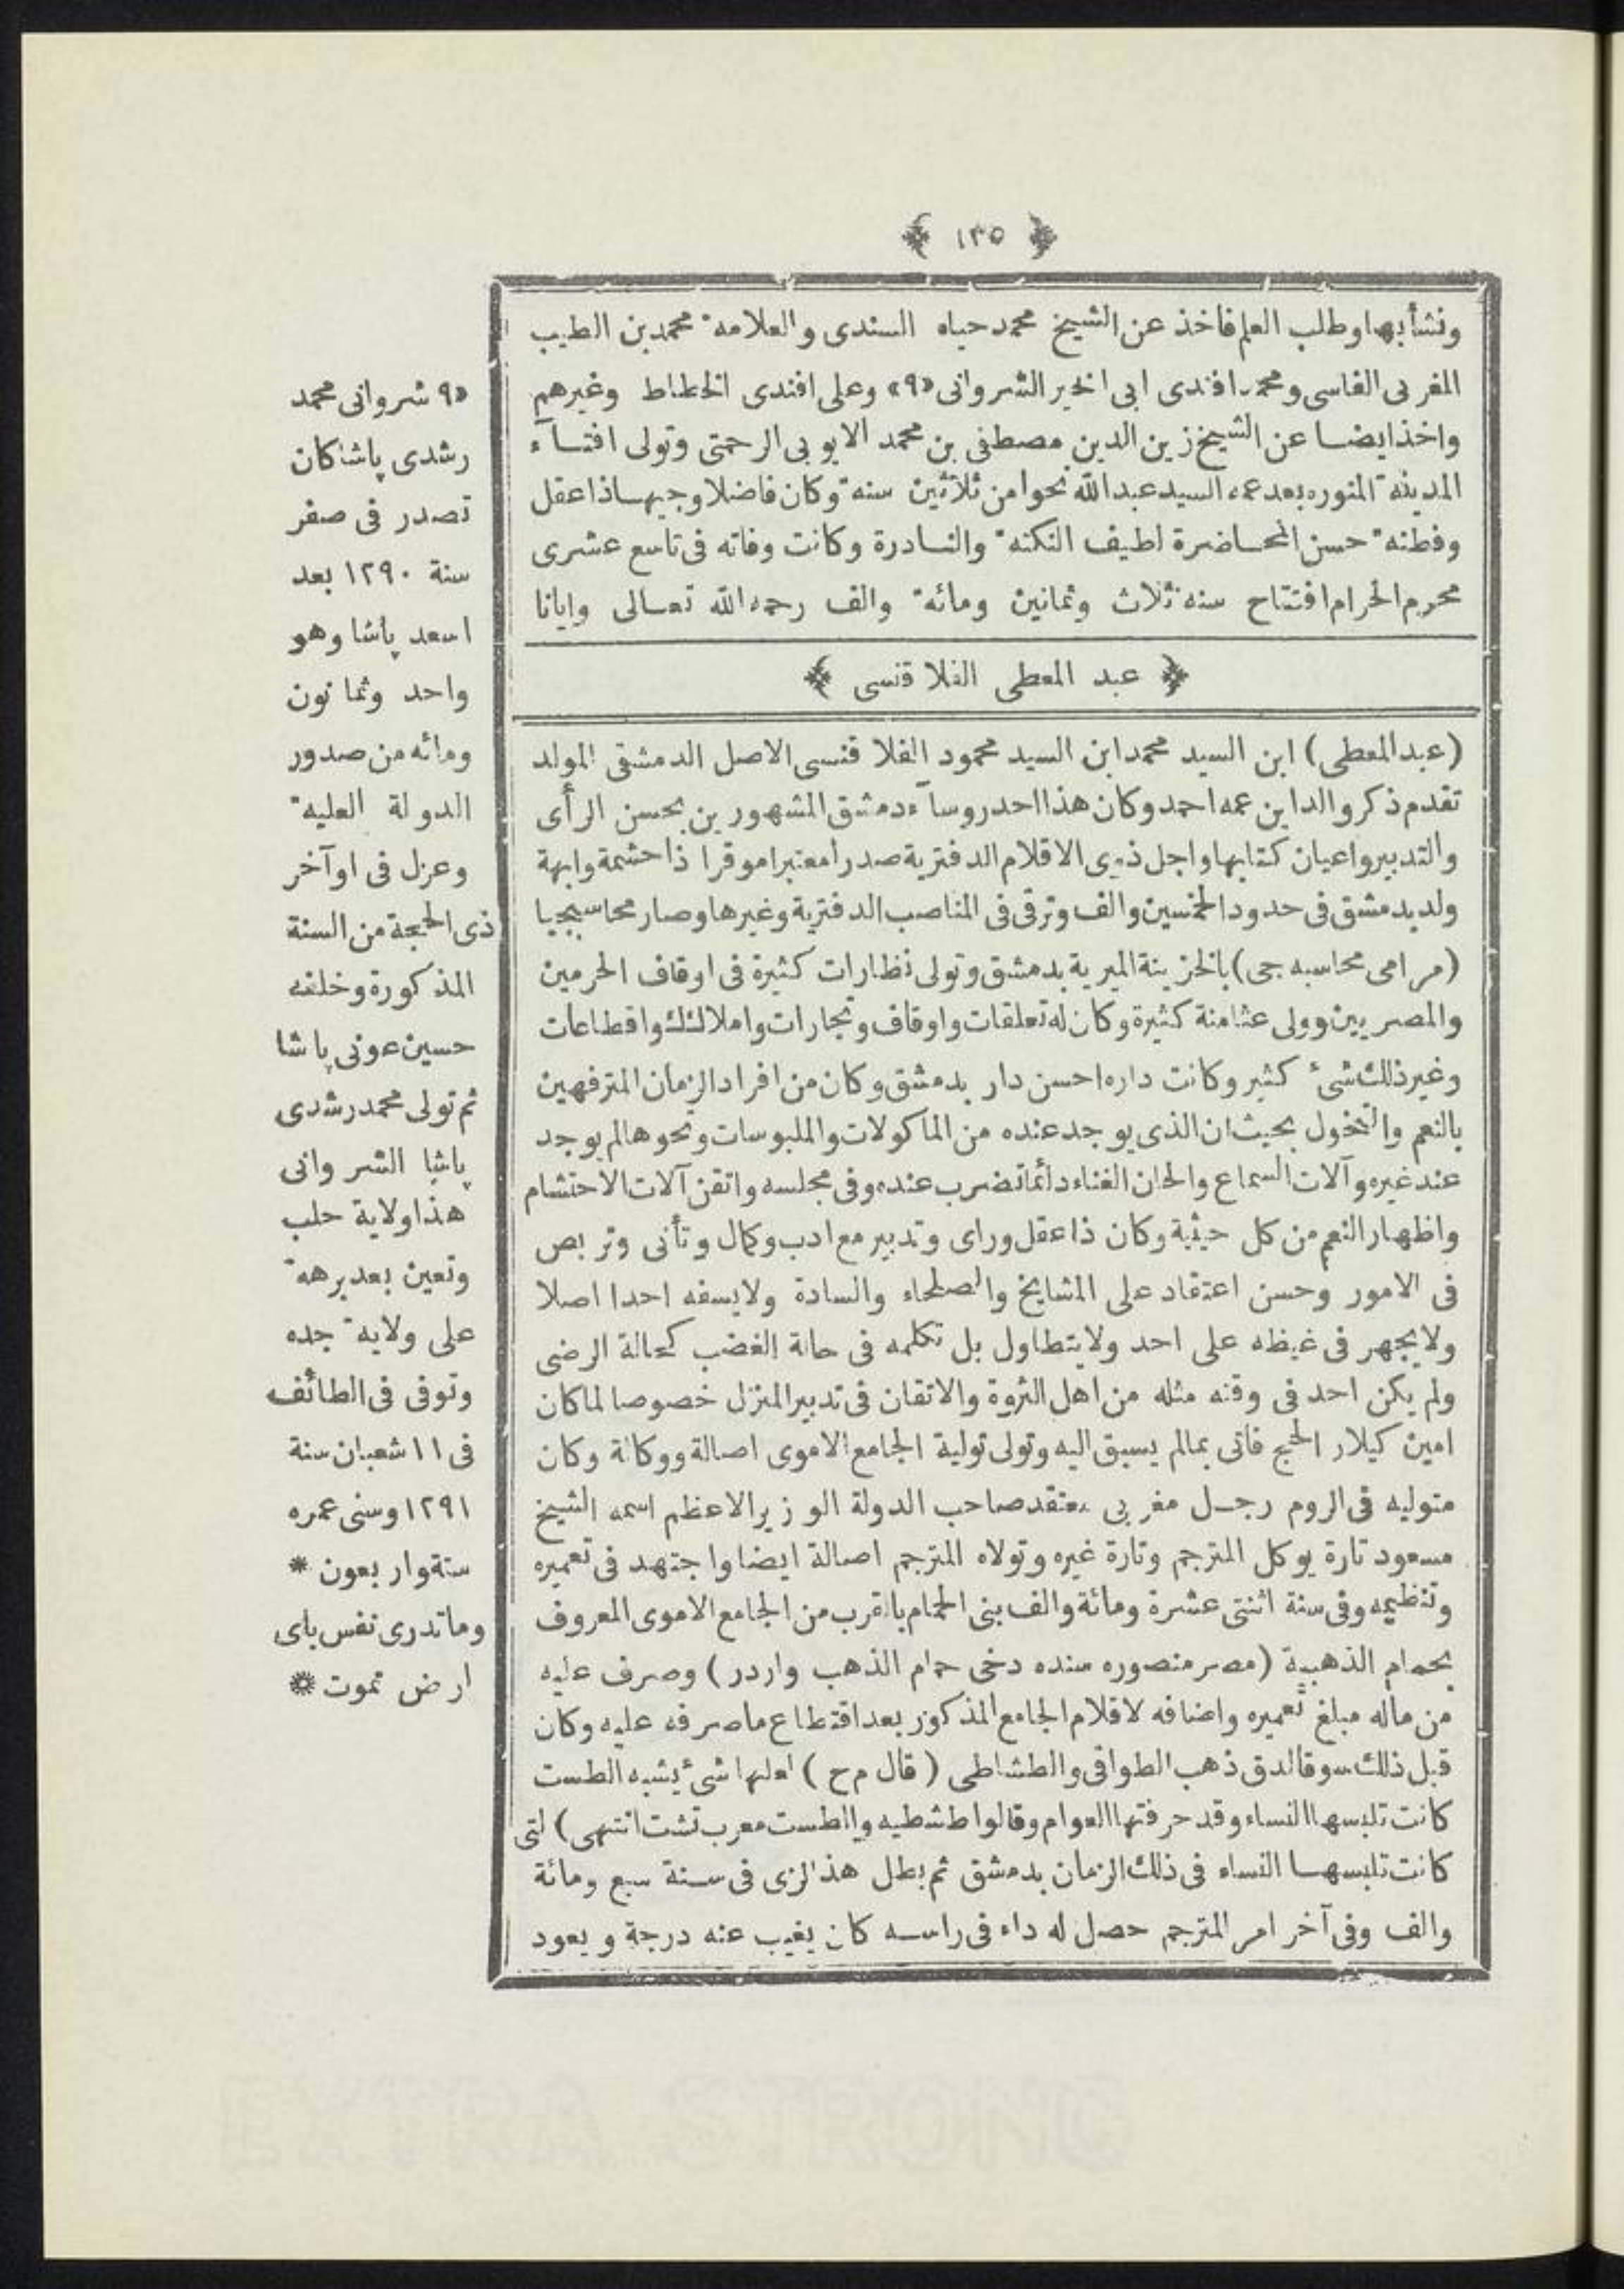 ﴿ ١٣٥ ﴾
ونشأ بها وطلب العلم فاخذ عن الشيخ محمد حياه السندى والعلامه محمد بن الطيب
المغربى الفاسى ومحمد افندى ابى الخير الشروانى «٩» وعلى افندى الخطاط وغيرهم
واخذ ايضا عن الشيخ زين الدين مصطفى بن محمد الايوبى الرحمتى وتولى افتآء
المدينه المنوره بعد عمه السيد عبد الله نحوا من ثلاثين سنه وكان فاضلا وجيها ذا عقل
وفطنه حسن المحاضرة لطيف النكته والنادرة وكانت وفاته فى تاسع عشرى
محرم الحرام افتتاح سنه ثلاث وثمانين ومائه والف رحمه الله تعالى وايانا
﴿ عبد المعطى الفلاقنسى ﴾
(عبد المعطى) ابن السيد محمد ابن السيد محمود الفلاقنسى الاصل الدمشقى المولد
تقدم ذكر والد ابن عمه احمد وكان هذا احد روسآء دمشق المشهورين بحسن الرأى
والتدبير واعيان كتابها واجل ذوى الاقلام الدفترية صدرا معتبرا موقرا ذا حشمة وابهة
ولد بدمشق فى حدود الخمسين والف وترقى فى المناصب الدفترية وغيرها وصار محاسبجيا
(مرامى محاسبه جى) بالخزينة الميرية بدمشق وتولى نظارات كثيرة فى اوقاف الحرمين
والمصريين وولى عثامنة كثيرة وكان له تعلقات واوقاف وتجارات واملاك واقطاعات
وغير ذلك شئ كثير وكانت داره احسن دار بدمشق وكان من افراد الزمان المترفهين
بالنعم والتخول بحيث ان الذى يوجد عنده من الماكولات والملبوسات ونحوها لم يوجد
عند غيره وآلات السماع والحان الغناء دائما تضرب عنده وفى مجلسه واتقن آلات الاحتشام
واظهار النعم من كل حيثية وكان ذا عقل وراى وتدبير مع ادب وكمال وتأنى وتربص
فى الامور وحسن اعتقاد على المشايخ والصلحاء والسادة ولا يسفه احدا اصلا
ولا يجهر فى غيظه على احد ولا يتطاول بل تكلمه فى حالة الغضب كحالة الرضى
ولم يكن احد فى وقته مثله من اهل الثروة والاتقان فى تدبير المنزل خصوصا لما كان
امين كيلار الحج فاتى بمالم يسبق اليه وتولى تولية الجامع الاموى اصالة ووكالة وكان
متوليه فى الروم رجل مغربى معتقد صاحب الدولة الوزير الاعظم اسمه الشيخ
مسعود تارة يوكل المترجم وتارة غيره وتولاه المترجم اصالة ايضا واجتهد فى تعميره
وتنظيمه وفى سنة اثنتى عشرة ومائة والف بنى الحمام بالقرب من الجامع الاموى المعروف
بحمام الذهبية (مصر منصوره سنده دخى حمام الذهب واردر) وصرف عليه
من ماله مبلغ تعميره واضافه لاقلام الجامع المذكور بعد اقتطاع ماصرفه عليه وكان
قبل ذلك سوقا لدق ذهب الطواقى والطشاطى (قال م ح) لعلها شئ يشبه الطست
كانت تلبسها النساء وقد حرفتها العوام وقالوا طشطيه والطست معرب تشت انتهى) لتى
كانت تلبسها النساء فى ذلك الزمان بدمشق ثم بطل هذ الزى فى سنة سبع ومائة
والف وفى آخر امر المترجم حصل له داء فى راسه كان يغيب عنه درجة ويعود
«٩ شروانى محمد
رشدى پاشا كان
تصدر فى صفر
سنة ١٢٩٠ بعد
اسعد پاشا وهو
واحد وثمانون
ومائه من صدور
الدولة العليه
وعزل فى اوآخر
ذى الحجة من السنة
المذكورة وخلفه
حسين عونى پاشا
ثم تولى محمد رشدى
پاشا الشروانى
هذا ولاية حلب
وتعين بعد برهه
على ولايه جده
وتوفى فى الطائف
فى ١١ شعبان سنة
١٢٩١ وسنى عمره
ستة واربعون *
وما تدرى نفس باى
ارض تموت *